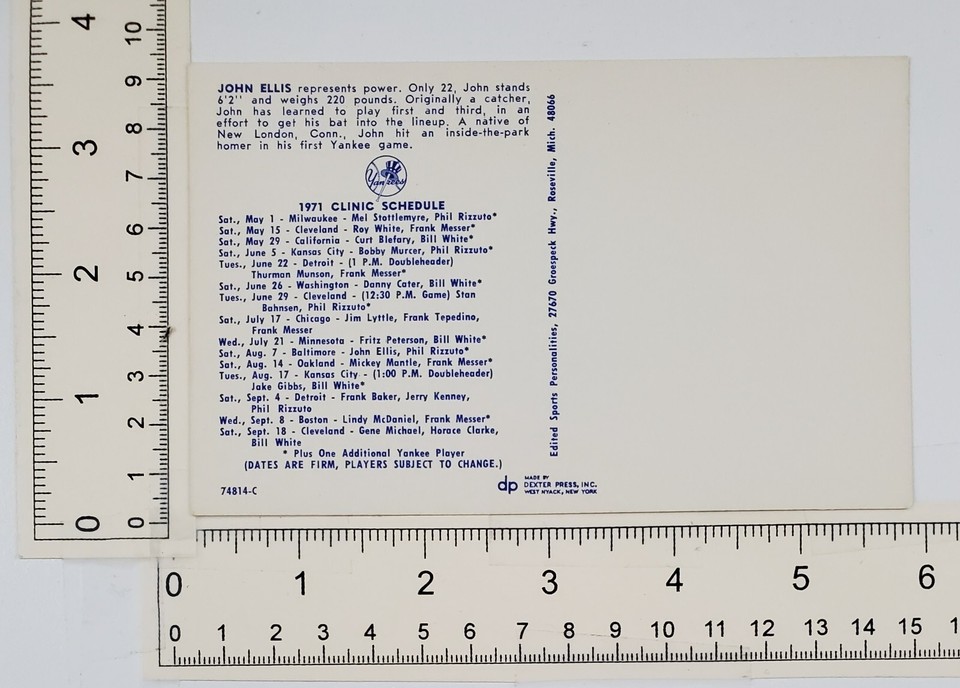 JOHN ELLIS represents power. Only 22, John stands
6'2'' and weighs 220 pounds. Originally a catcher,
John has learned to play first and third, in an
effort to get his bat into the lineup. A native of
New London, Conn., John hit an inside-the-park
homer in his first Yankee game.
Yankees
1971 CLINIC SCHEDULE
Sat., May 1 - Milwaukee - Mel Stottlemyre, Phil Rizzuto*
Sat., May 15 - Cleveland - Roy White, Frank Messer*
Sat., May 29 - California - Curt Blefary, Bill White*
Sat., June 5 - Kansas City - Bobby Murcer, Phil Rizzuto*
Tues., June 22 - Detroit - (1 P.M. Doubleheader)
Thurman Munson, Frank Messer*
Sat., June 26 - Washington - Danny Cater, Bill White*
Tues., June 29 - Cleveland - (12:30 P.M. Game) Stan
Bahnsen, Phil Rizzuto*
Sat., July 17 - Chicago - Jim Lyttle, Frank Tepedino,
Frank Messer
Wed., July 21 - Minnesota - Fritz Peterson, Bill White*
Sat., Aug. 7 - Baltimore - John Ellis, Phil Rizzuto*
Sat., Aug. 14 - Oakland - Mickey Mantle, Frank Messer*
Tues., Aug. 17 - Kansas City - (1:00 P.M. Doubleheader)
Jake Gibbs, Bill White*
Sat., Sept. 4 - Detroit - Frank Baker, Jerry Kenney,
Phil Rizzuto
Wed., Sept. 8 - Boston - Lindy McDaniel, Frank Messer*
Sat., Sept. 18 - Cleveland - Gene Michael, Horace Clarke,
Bill White
* Plus One Additional Yankee Player
(DATES ARE FIRM, PLAYERS SUBJECT TO CHANGE.)
74814-C
dp
MADE BY
DEXTER PRESS, INC.
WEST NYACK, NEW YORK
Edited Sports Personalities, 27670 Groespeck Hwy., Roseville, Mich. 48066
4
3
2
1
0
10
9
8
7
6
5
4
3
2
1
0
0 1 2 3 4 5 6
0 1 2 3 4 5 6 7 8 9 10 11 12 13 14 15 1